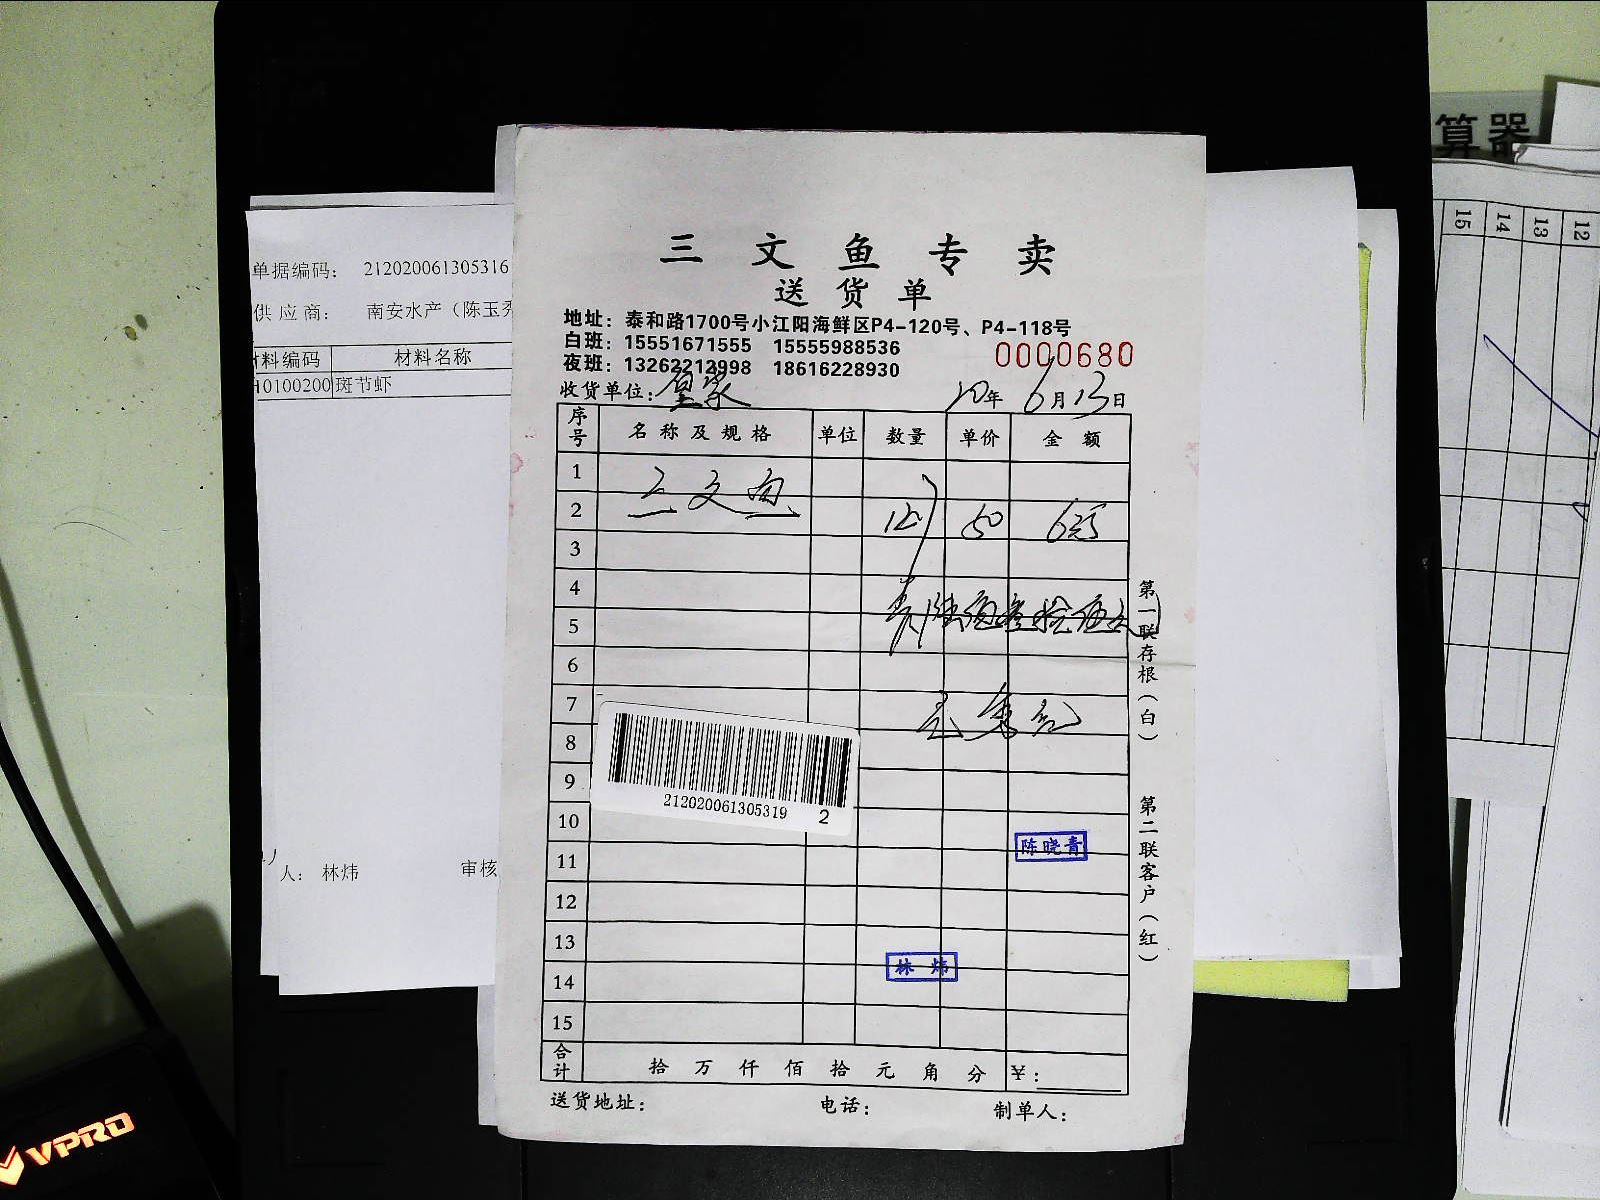 三文鱼专卖
送货单
地址：泰和路1700号小江阳海鲜区P4-120号、P4-118号
白班：15551671555 15555988536
夜班：13262212998 18616228930
0000680
收货单位：
20年6月13日
序号 名称及规格 单位 数量 单价 金额
1
2 三文鱼 50
3
4
5
6
7
8
9
10
11
12
13
14
15
212020061305319 2
陈晓青
林炜
合计 拾 万 仟 佰 拾 元 角 分 ¥：
送货地址： 电话： 制单人：
第一联存根（白）
第二联客户（红）
单据编码： 212020061305316
供应商： 南安水产（陈玉
材料编码 材料名称
0100200 斑节虾
人： 林炜 审核
算器
15 14 13 12
VPRO